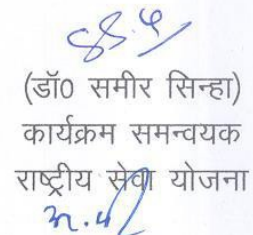 (डॉ0 समीर सिन्हा)
कार्यक्रम समन्वयक
राष्ट्रीय सेवा योजना